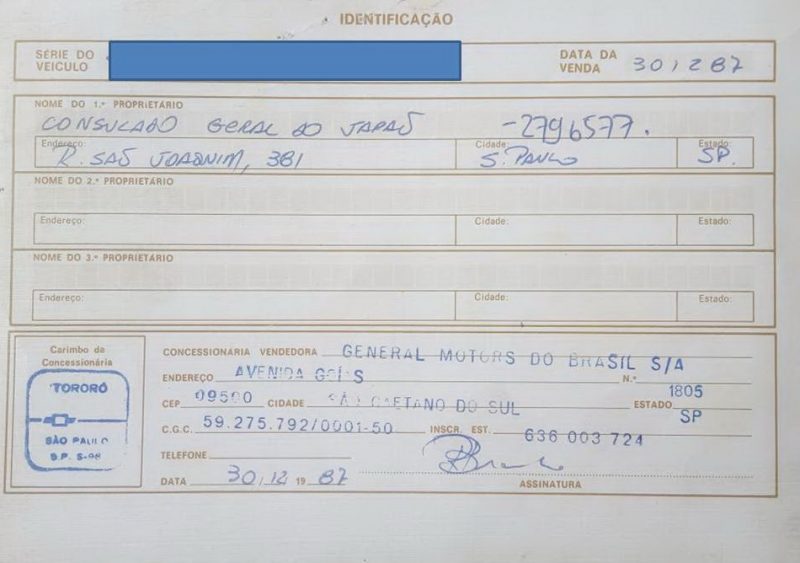 IDENTIFICAÇÃO
SÉRIE DO VEÍCULO
DATA DA VENDA 30/12 87
NOME DO 1.º PROPRIETÁRIO
CONSULADO GERAL DO JAPAÕ -2796577.
Endereço: Cidade: Estado:
R. SAÕ JOAQUIM, 381 S. PAULO SP.
NOME DO 2.º PROPRIETÁRIO
Endereço: Cidade: Estado:
NOME DO 3.º PROPRIETÁRIO
Endereço: Cidade: Estado:
Carimbo da Concessionária
TORORÓ
SÃO PAULO
S.P. S-08
CONCESSIONÁRIA VENDEDORA GENERAL MOTORS DO BRASIL S/A
ENDEREÇO AVENIDA GOIÁS N.º 1805
CEP 09500 CIDADE SÃO CAETANO DO SUL ESTADO SP
C.G.C. 59.275.792/0001-50 INSCR. EST. 636 003 724
TELEFONE
DATA 30/12 19 87
ASSINATURA